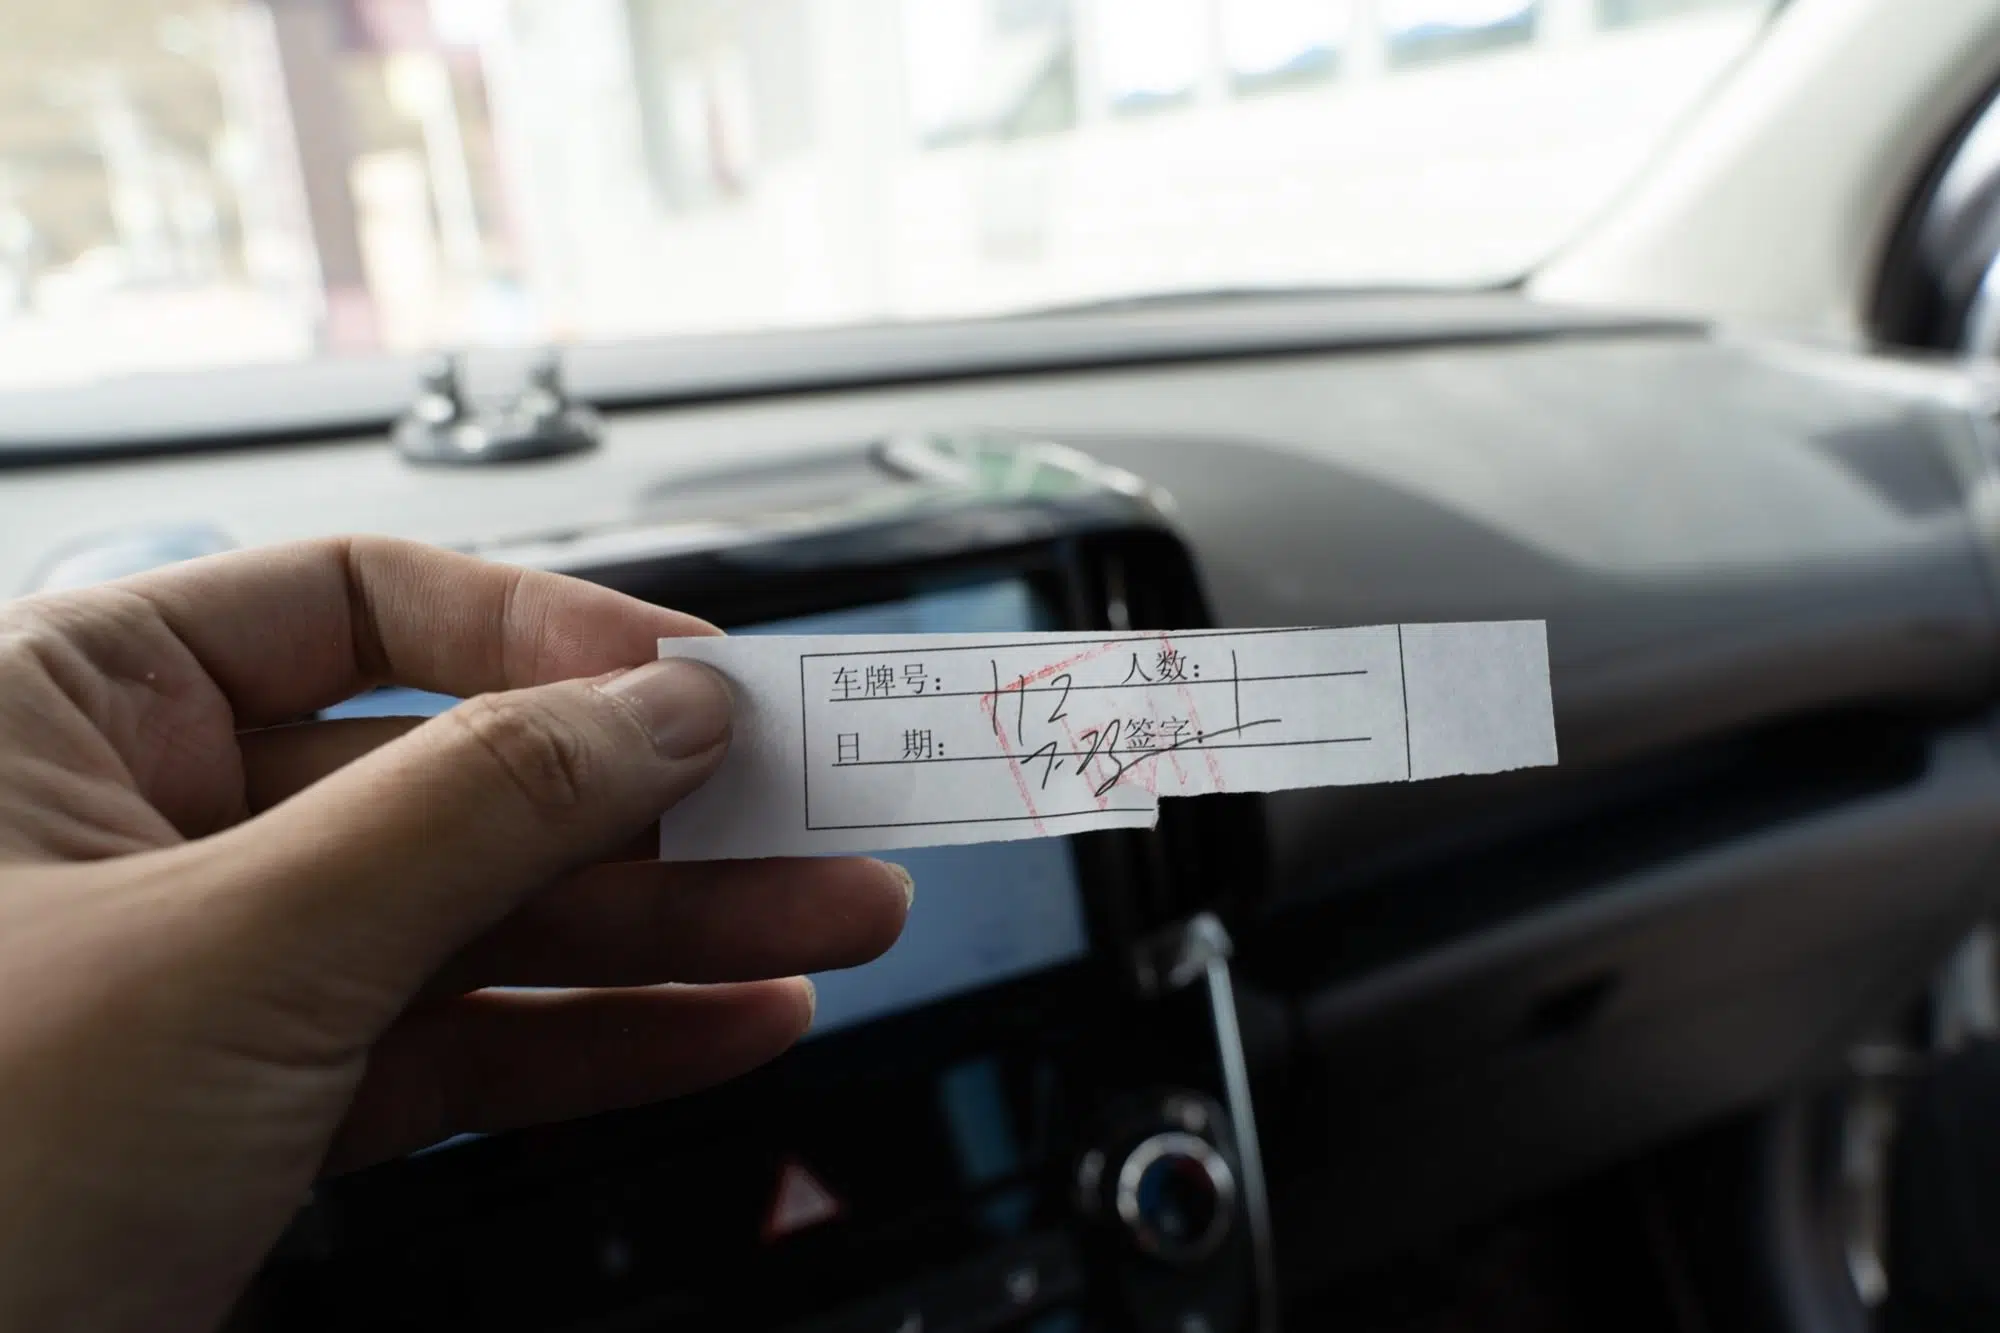 车牌号： 112 人数： 1
日 期： 7.23 签字：